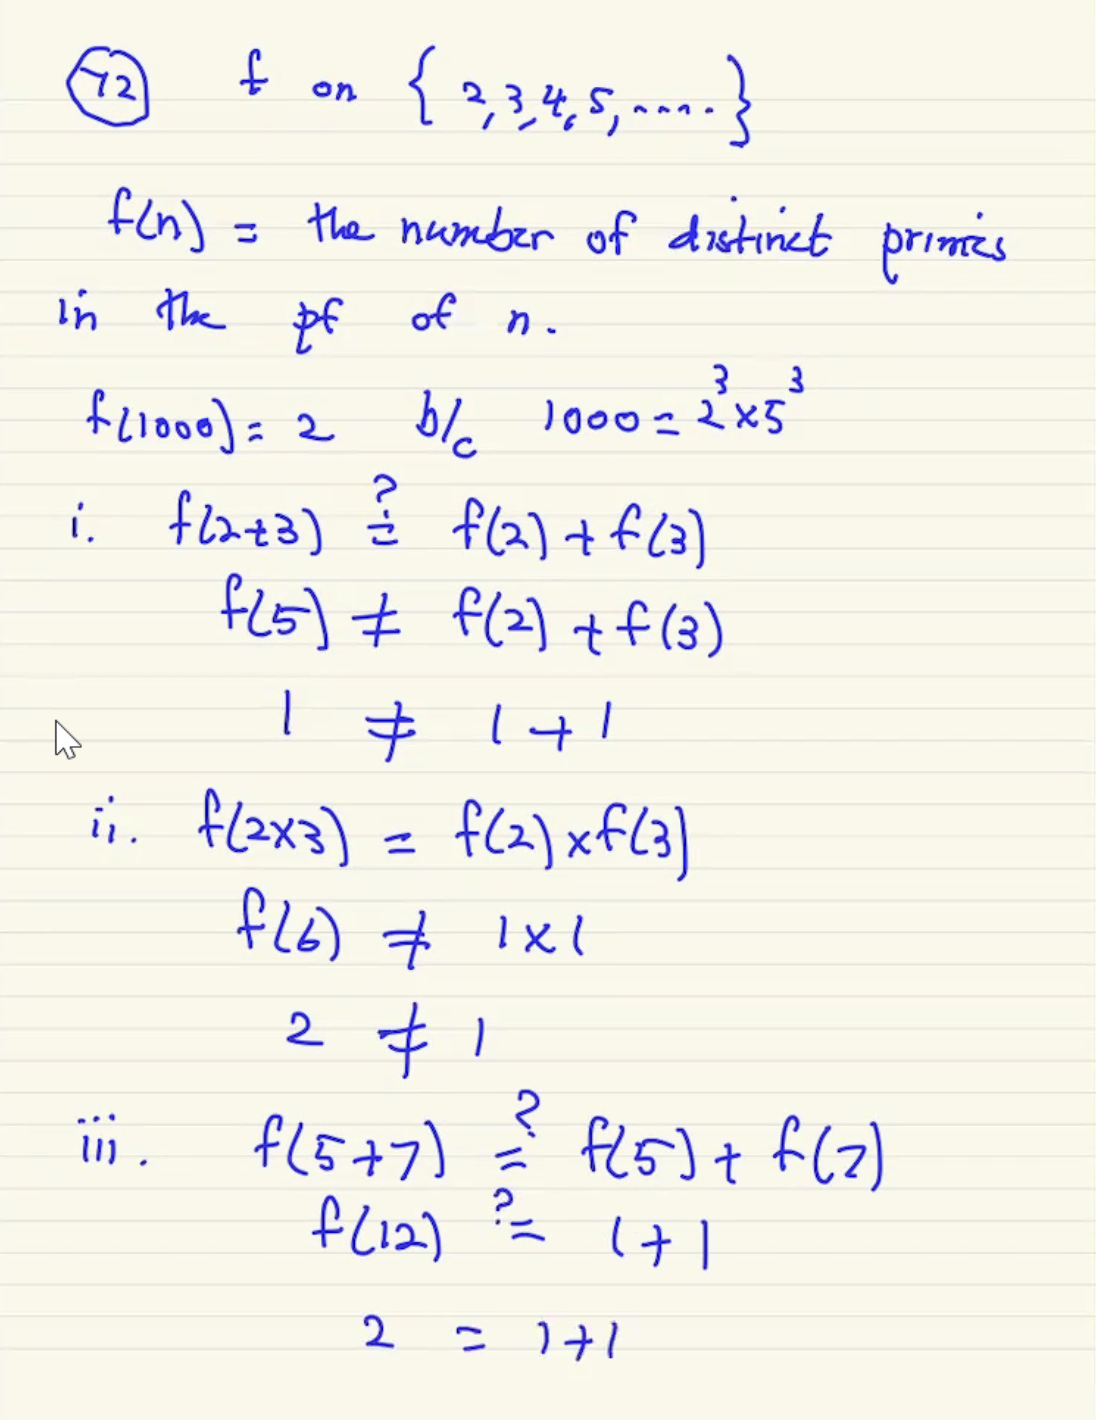 72 f on { 2,3,4,5,..... }
f(n) = the number of distinct primes
in the pf of n.
f(1000) = 2 b/c 1000 = 2³ × 5³
i. f(2+3) ≟ f(2) + f(3)
f(5) ≠ f(2) + f(3)
1 ≠ 1 + 1
ii. f(2×3) = f(2) × f(3)
f(6) ≠ 1 × 1
2 ≠ 1
iii. f(5+7) ≟ f(5) + f(7)
f(12) ?= 1 + 1
2 = 1+1